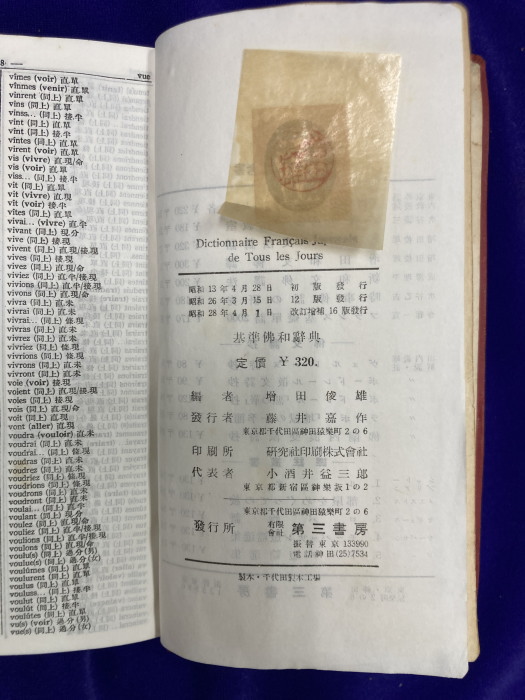 8 —
vue
vîmes (voir) 直.單
vînmes (venir) 直.單
vinrent (同上) 直.單
vins (同上) 直.單
vinss... (同上) 接.半
vint (同上) 直.單
vînt (同上) 接.半
vîntes (同上) 直.單
virent (voir) 直.單
vis (vivre) 直.現/命
vis (voir) 直.單
viss... (同上) 接.半
vit (同上) 直.單
vit (vivre) 直.現
vît (voir) 接.半
vîtes (同上) 直.單
vivai... (vivre) 直.半
vivant (同上) 現.分
vive (同上) 接.現
vivent (同上) 直.現/接.現
vives (同上) 接.現
vivez (同上) 直.現/命
viviez (同上) 直.半/接.現
vivions (同上) 直.半/接.現
vivons (同上) 直.現/命
vivra (同上) 直.未
vivrai (同上) 直.未
vivrai... (同上) 條.現
vivras (同上) 直.未
vivrez (同上) 直.未
vivriez (同上) 條.現
vivrions (同上) 條.現
vivrons (同上) 直.未
vivront (同上) 直.未
voie (voir) 接.現
voient (同上) 直.現/接.現
voies (同上) 接.現
vois (同上) 直.現/命
voit (同上) 直.現
vont (aller) 直.現
voudra (vouloir) 直.未
voudrai (同上) 直.未
voudrai... (同上) 條.現
voudras (同上) 直.未
voudrez (同上) 直.未
voudriez (同上) 條.現
voudrions (同上) 條.現
voudrons (同上) 直.未
voudront (同上) 直.未
voulai... (同上) 直.半
voulant (同上) 現.分
voulez (同上) 直.現/命
vouliez (同上) 直.半/接.現
voulions (同上) 直.半/接.現
voulons (同上) 直.現/命
voulu(s) (同上) 過.分(男)
voulue(s) (同上) 過.分(女)
voulûmes (同上) 直.單
voulurent (同上) 直.單
voulus (同上) 直.單
vouluss... (同上) 接.半
voulut (同上) 直.單
voulût (同上) 接.半
voulûtes (同上) 直.單
vu(s) (voir) 過.分(男)
vue(s) (同上) 過.分(女)
Dictionnaire Français
de Tous les Jours
昭和13年4月28日 初版發行
昭和26年3月15日 12版發行
昭和28年4月1日 改訂增補16版發行
基準佛和辭典
定價 ¥320.
編者 增田俊雄
發行者 藤井嘉作
東京都千代田區神田猿樂町2の6
印刷所 研究社印刷株式會社
代表者 小酒井益三郎
東京都新宿區神樂坂1の2
東京都千代田區神田猿樂町2の6
發行所 有限會社 第三書房
振替東京133990
電話神田(25)7534
製本・千代田製本工場